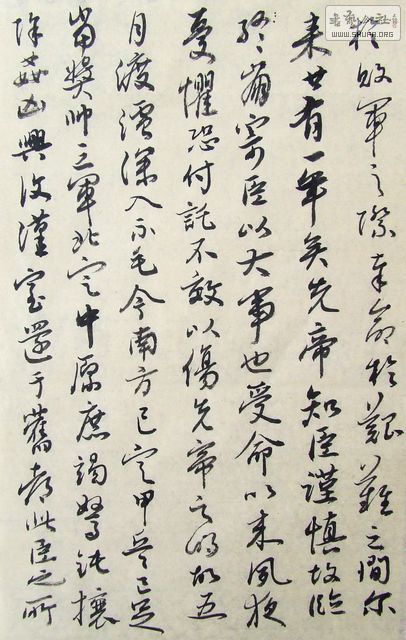 於敗軍之際奉命於艱難之間爾
來廿有一年矣先帝知臣謹慎故臨
終崩寄臣以大事也受命以來夙夜
憂懼恐付託不效以傷先帝之明故五
月渡瀘深入不毛今南方已定甲兵已足
當獎帥三軍北定中原庶竭駑鈍攘
除姦凶興復漢室還于舊都此臣之所
WWW.SHUFA.ORG